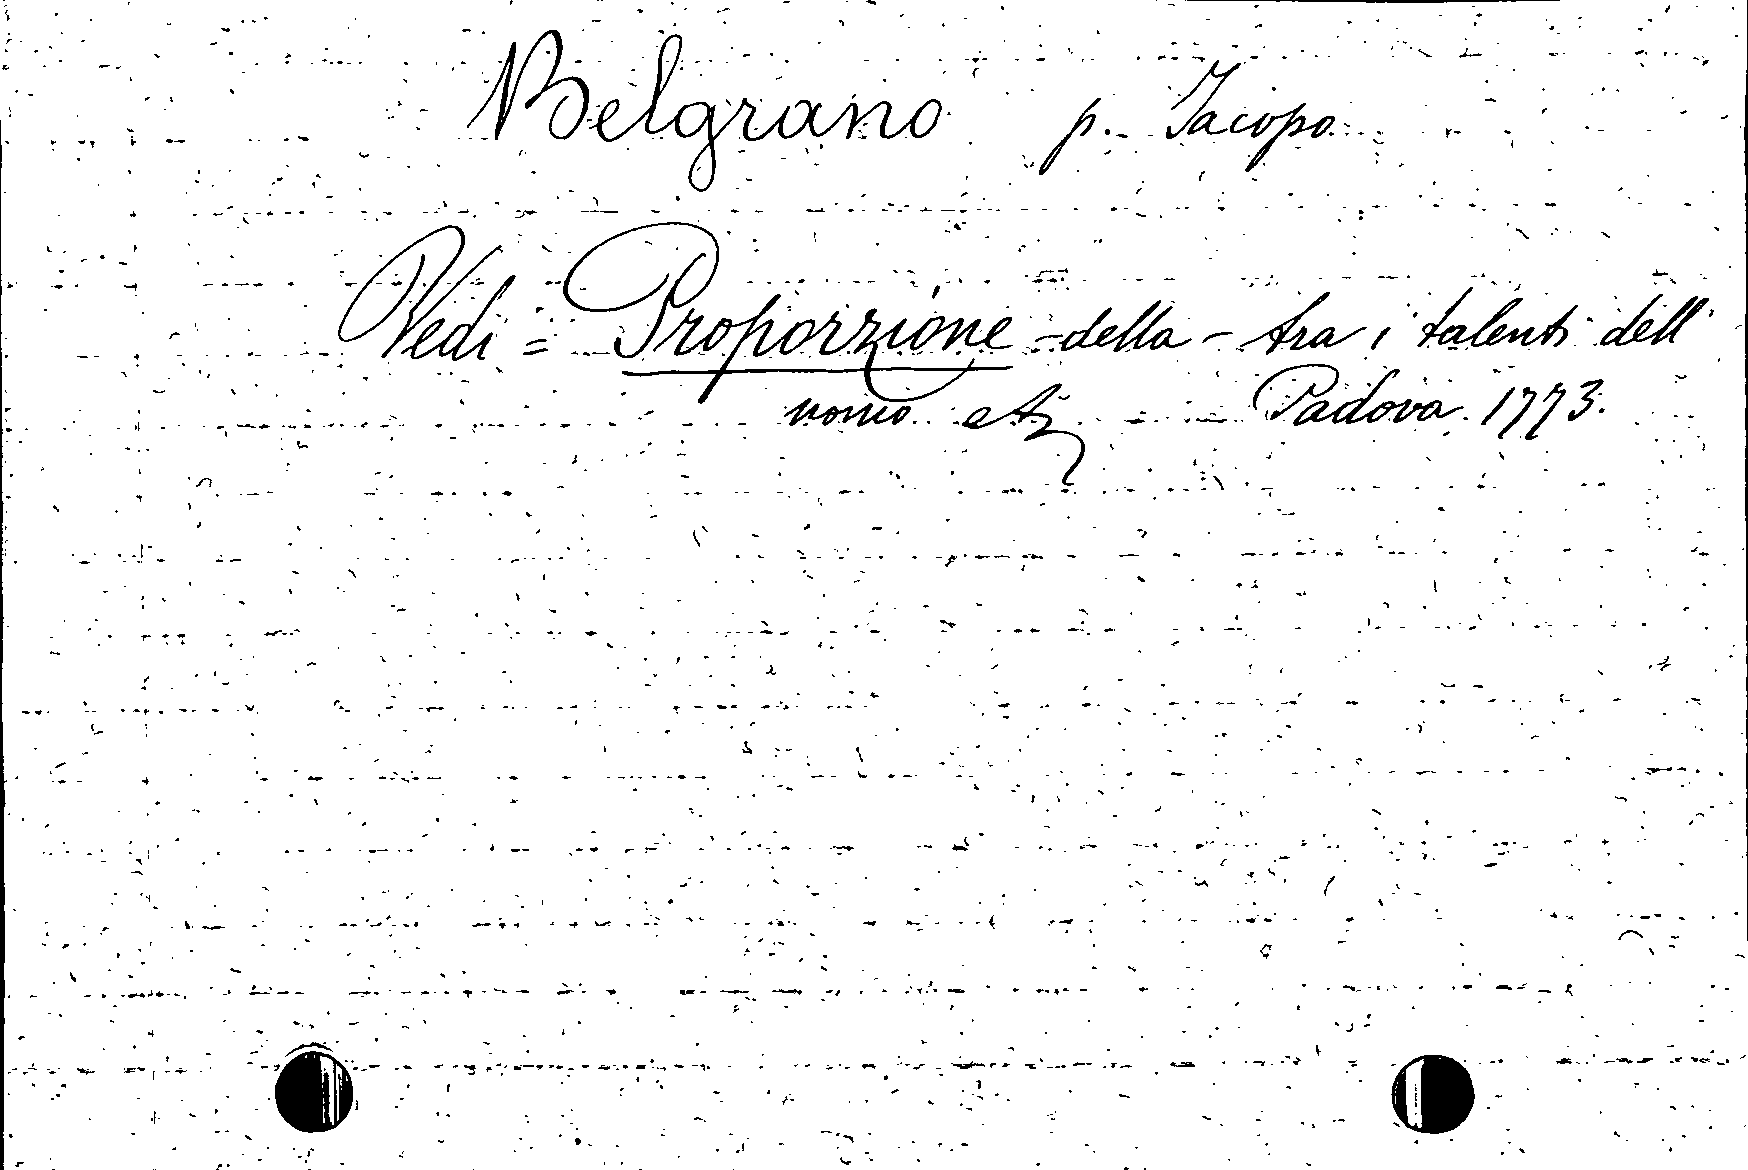 Belgrano p. Jacopo
Vedi = Proporzione - della - tra i talenti dell'
uomo etc Padova. 1773.